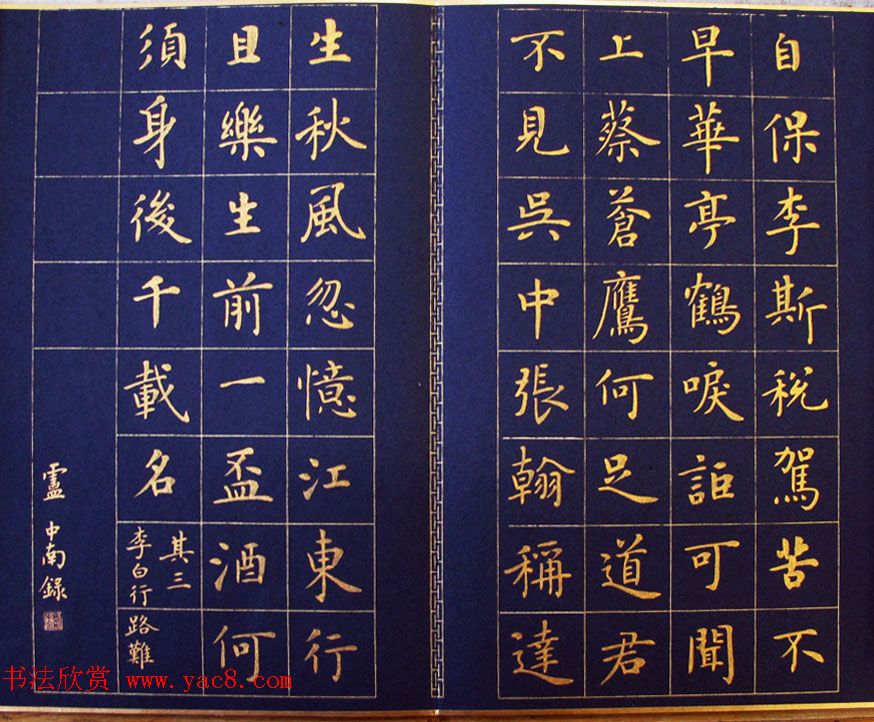 自保李斯稅駕苦不
早華亭鶴唳詎可聞
上蔡蒼鷹何足道君
不見吳中張翰稱達
生秋風忽憶江東行
且樂生前一盃酒何
須身後千載名
其三
李白行路難
盧中南錄
书法欣赏 www.yac8.com